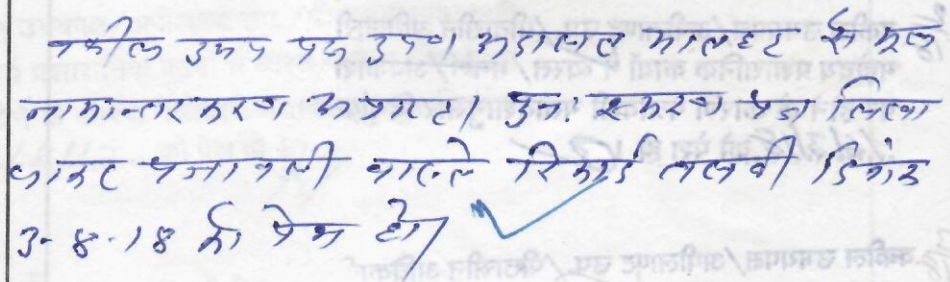 वकील उभय पक्ष उप० अदालत मातहत से मूल
नामान्तरकरण अप्राप्त। पुनः स्मरण पत्र लिखा
जाकर पत्रावली वास्ते रिकार्ड तलबी दिनांक
3-8-18 को पेश हो।